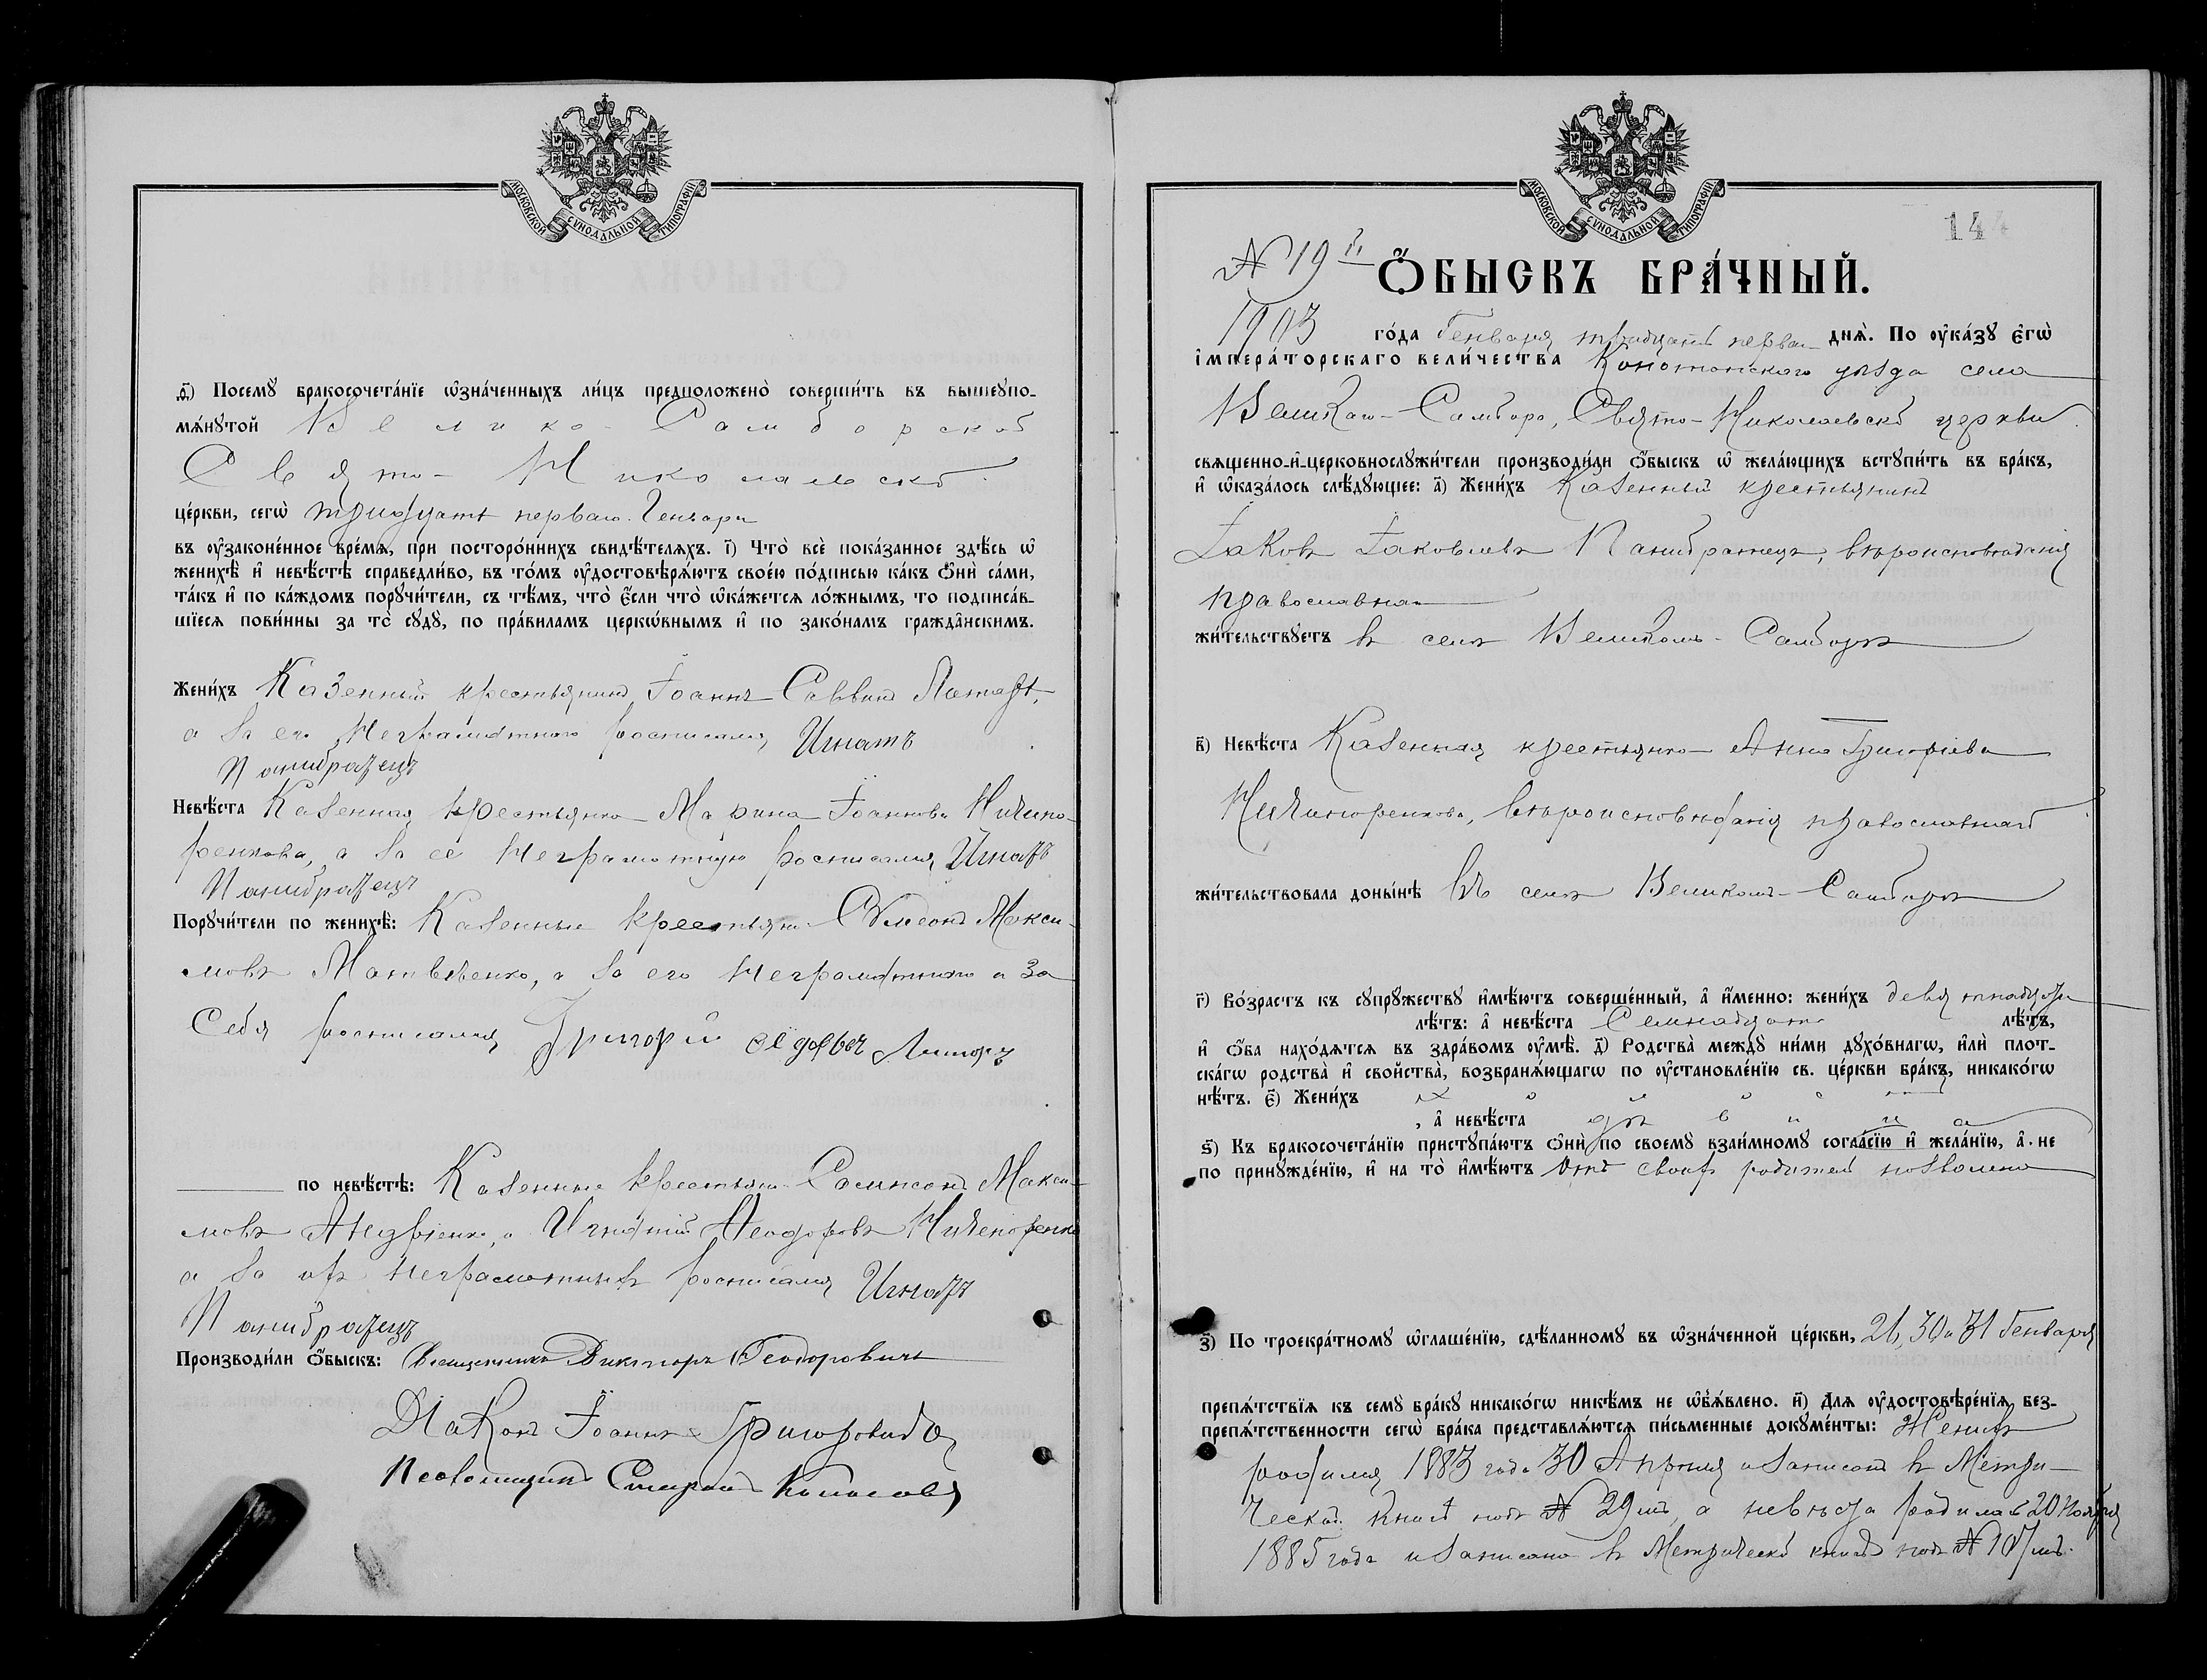 МОСКОВСКОЙ СѴНОДАЛЬНОЙ ТИПОГРАФІИ
д҃) Посемꙋ бракосочета́нїе ѡзна́ченныхъ ли́цъ предположено̀ соверши́ть въ вышеꙋпо-
мѧ́нꙋтой Велико-Самборской
Свято-Николаевской
це́ркви, сегѡ̀ тридцать перваго Генваря
въ оу҆зако́ненное вре́мѧ, при посторо́ннихъ свидѣ́телѧхъ. і҃) Что̀ всѐ пока́занное здѣ́сь ѡ҆
женихѣ̀ и҆ невѣ́стѣ справедли́во, въ то́мъ оу҆достовѣрѧ́ютъ свое́ю по́дписью ка́къ ѻ҆нѝ са́ми,
та́къ и҆ по ка́ждомъ порꙋчи́тели, съ тѣ́мъ, что̀ є҆́сли что̀ ѡ҆ка́жетсѧ ло́жнымъ, то подписа́в-
шїесѧ пови́нны за то̀ сꙋдꙋ̀, по пра́виламъ церко́внымъ и҆ по зако́намъ гражда́нскимъ.
Жени́хъ Казенный крестьянинъ Іоаннъ Саввинъ
а за его Неграмотного росписался Игнатъ
Панибратецъ
Невѣ́ста Казенная крестьянка Марина Іоаннова Ничипо-
ренкова, а за её Неграмотную росписался Игнатъ
Панибратецъ
Порꙋчи́тели по женихѣ̀: Казенные крестьяне Сѵмеонъ Макси-
мовъ Матвѣенко, а за его Неграмотного и За
Себя росписался Григорій
по невѣ́стѣ: Казенные крестьяне Сампсонъ Макси-
мовъ Андріенко, и Игнатій Ѳеодоровъ Ничипоренко
а за ихъ Неграмотныхъ росписался Игнатъ
Панибратецъ
Производи́ли ѻ҆́быскъ: Священникъ Викторъ Ѳеодоровичъ
Діаконъ Іоаннъ
Псаломщикъ
МОСКОВСКОЙ СѴНОДАЛЬНОЙ ТИПОГРАФІИ
144
№ 19й
Ѻ҆́БЫСКЪ БРА́ЧНЫЙ.
1903 го́да Генваря тридцать перваго днѧ̀. По оу҆ка́зꙋ є҆гѡ̀
і҆мпера́торскаго вели́чества Конотопского уѣзда села
Великаго-Самбора, Свято-Николаевской церкви
свѧщенно-и҆-церковнослꙋжи́тели производи́ли ѻ҆́быскъ ѡ҆ жела́ющихъ встꙋпи́ть въ бра́къ,
и҆ ѡ҆каза́лось слѣ́дꙋющее: а҃) Жени́хъ Казенный крестьянинъ
Іаковъ Іаковлевъ Панибратецъ, вѣроисповѣданія
православнаго
жи́тельствꙋетъ въ селѣ Великомъ-Самборѣ
в҃) Невѣ́ста Казенная крестьянка Анна Григоріева
Ничипоренкова, вѣроисповѣданія православнаго
жи́тельствовала доны́нѣ въ селѣ Великомъ-Самборѣ
г҃) Во́зрастъ къ сꙋпрꙋ́жествꙋ и҆мѣ́ютъ соверше́нный, а҆ и҆́менно: жени́хъ девятнадцать
лѣ́тъ: а҆ невѣ́ста Семнадцать лѣ́тъ,
и҆ ѻ҆́ба нахо́дѧтсѧ въ здра́вомъ оу҆мѣ̀. д҃) Родства̀ междꙋ̀ ни́ми дꙋхо́внагѡ, и҆лѝ плот-
ска́гѡ родства̀ и҆ сво́йства̀, возбранѧ́ющагѡ по оу҆становле́нїю св. це́ркви бра́къ, никако́гѡ
нѣ́тъ. є҃) Жени́хъ холостъ
, а҆ невѣ́ста дѣвица
ѕ҃) Къ бракосочета́нїю пристꙋпа́ютъ ѻ҆нѝ по своемꙋ̀ взаи́мномꙋ согла́сїю и҆ жела́нїю, а҆ не
по принꙋжде́нїю, и҆ на то̀ и҆мѣ́ютъ отъ своихъ родителей позволеніе
з҃) По троекра́тномꙋ ѡ҆глаше́нїю, сдѣ́ланномꙋ въ ѡ҆зна́ченной це́ркви, 26, 30 и 31 Генваря
препѧ́тствїѧ къ семꙋ̀ бра́кꙋ никако́гѡ никѣ́мъ не ѡ҆б̾ѧ́влено. и҃) Длѧ оу҆достовѣре́нїѧ без-
препѧ́тственности сегѡ̀ бра́ка представлѧ́ютсѧ пи́сьменные докꙋме́нты: Женихъ
родился 1883 года 30 Апрѣля и записанъ въ Метри-
ческой книгѣ подъ № 29мъ, а невѣста родилась 20 Ноября
1885 года и записана въ Метрической книгѣ подъ № 107мъ.